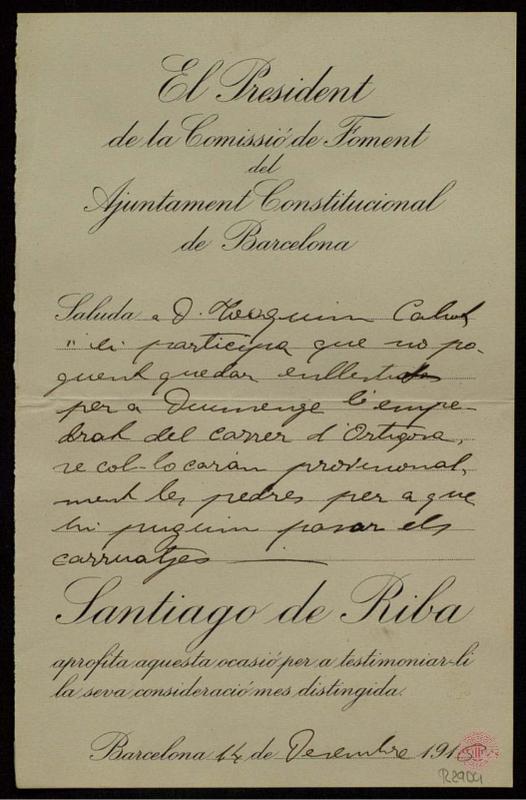 El President
de la Comissió de Foment
del
Ajuntament Constitucional
de Barcelona
Saluda a D. Joaquim Cabot
" li participa que no po-
guent quedar enllestit
per a Diumenge l'empe-
drat del carrer d'Ortigosa,
se col-locarán provisional-
ment les pedres per a que
hi puguin pasar els
carruatjes
Santiago de Riba
aprofita aquesta ocasió per a testimoniar-li
la seva consideració mes distingida.
Barcelona 14 de Desembre 191
R2909